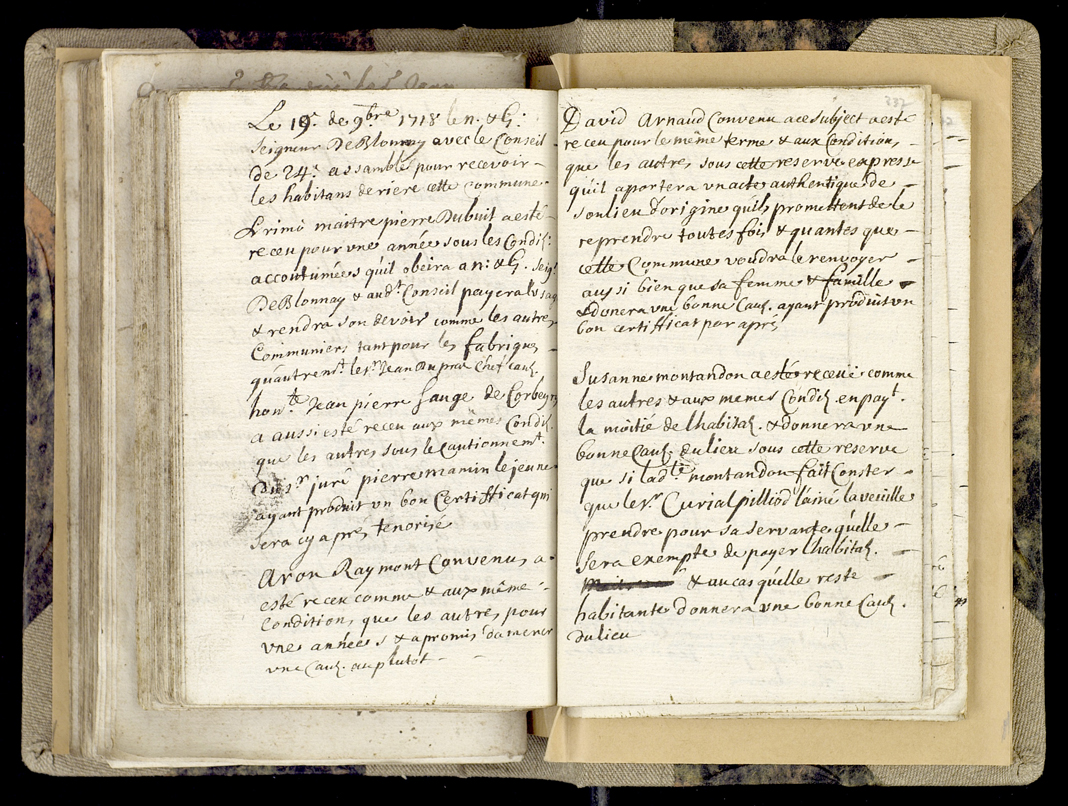 Le 19.e de 9bre 1718 le n. & G:
Seigneur DeBlonnay avec le Conseil
de 24: assamblé pour recevoir
les habitans deriere cette commune.
Primò maitre pierre Dubuit a esté
receu pour une année sous les Condi:
accoutumées qu'il obeira a n: & G. Seig.r
DeBlonnay & aud.t Conseil payera l'usag
& rendra son devoir comme les autres
Communiers tant pour les fabriques
qu'autrem.t le s.r Jean Duprat Chef Cau.
hon.ble Jean pierre Sauge de Corbeyre
a aussi esté receu aux mêmes Condi.
que les autres sous le Cautionnem.t
du s.r juré pierre mamin le jeune
ayant produit un bon Certifficat qui
sera cy apres tenorisé
Aron Raymont Convenus a
esté receu comme & aux même
Conditions que les autres pour
une années & a promis da mener
une Cau. au plutôt
337
David Arnaud Convenu a ce subject a esté
receu pour le même terme & aux Conditions
que les autres sous cette reserve expresse
qu'il aportera un acte authentique de
son lieu d'origine qu'ils promettent de le
reprendre toutes fois & quantes que
cette Commune voudra le renvoyer
aussi bien que sa femme & famille
& donera une bonne Cau. ayant produit un
bon certifficat par après
Susanne montandon a esté receüe comme
les autres & aux memes Condi. en pay.t
la moitié de lhabita. & donnera une
bonne Cau. du lieu sous cette reserve
que si lad.te montandon fait Conster
que le s.r Curial pilliod l'ainé la veuille
prendre pour sa servante qu'elle
sera exempte de payer lhabita.
& au cas qu'elle reste
habitante donnera une bonne Cau.
du lieu